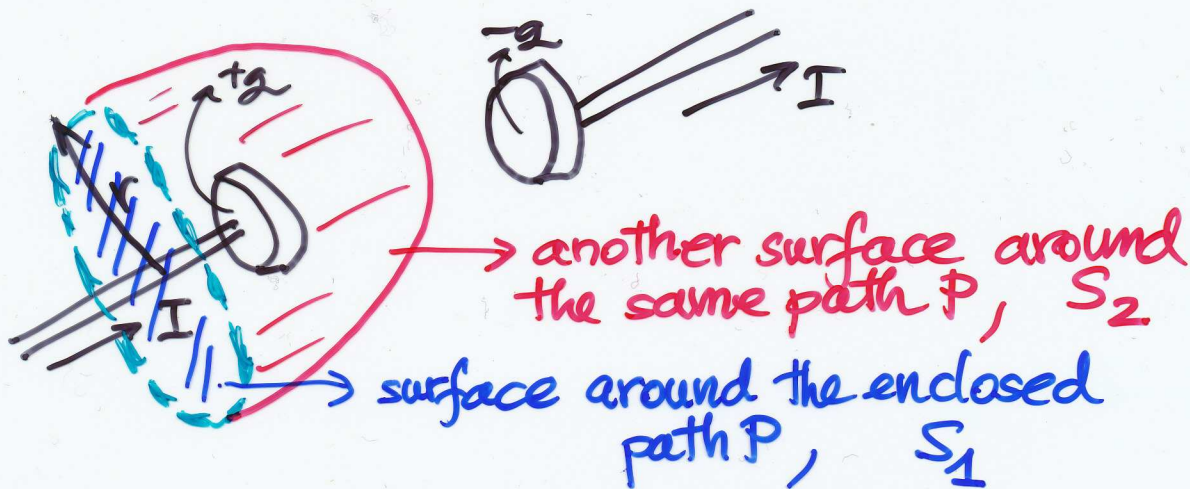 -q
+q
I
r
I
another surface around
the same path P, S2
surface around the enclosed
path P, S1